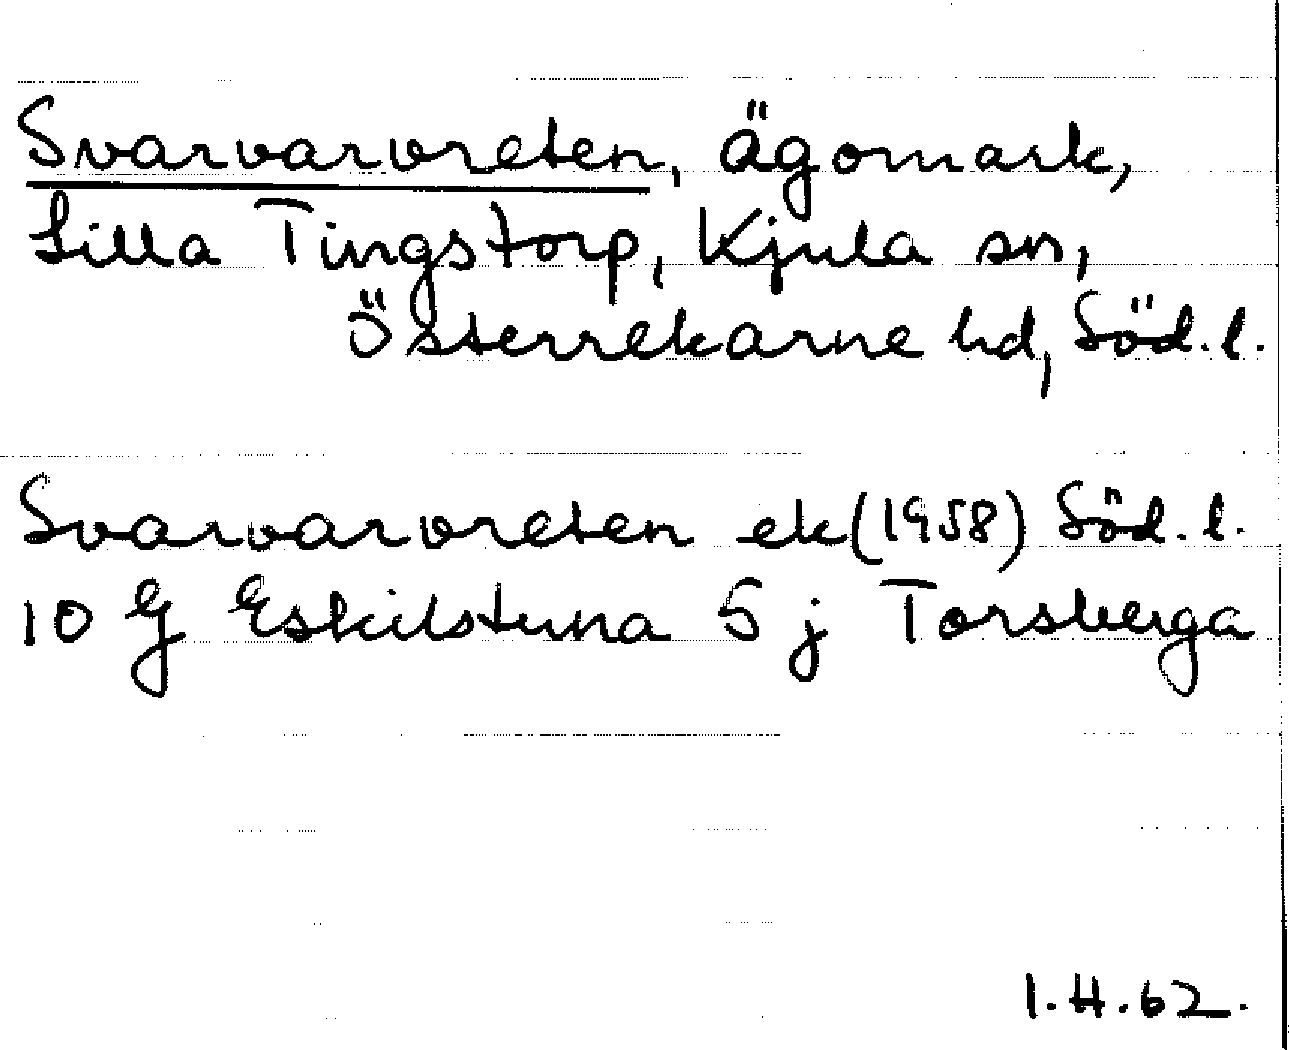 Svarvarvreten, ägomark,
Lilla Tingstorp, Kjula sn,
Österrekarne hd, Söd. l.
Svarvarvreten ek (1958) Söd. l.
10 G Eskilstuna 5 j Torsberga
I.H.62.